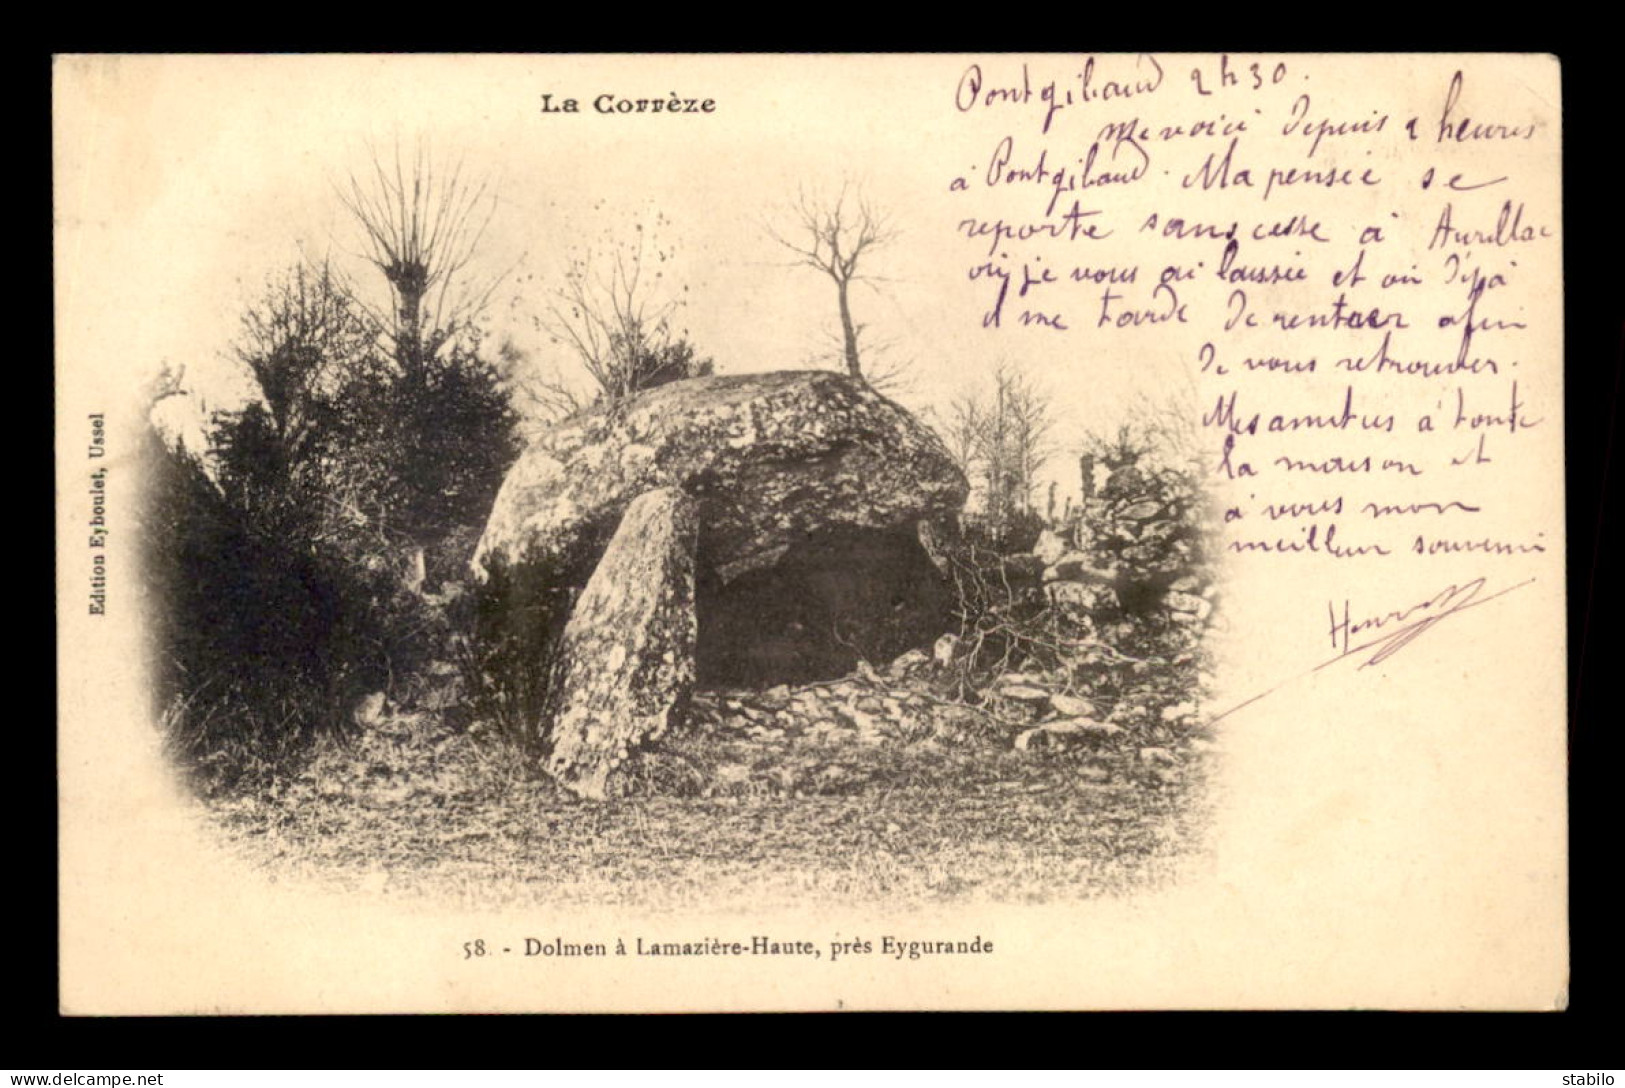 La Corrèze
Pontgibaud 2 h 30.
Me voici depuis 2 heures
à Pontgibaud. Ma pensée se
reporte sans cesse à Aurillac
où je vous ai laissée et où déjà
il me tarde de rentrer afin
de vous retrouver.
Mes amitiés à toute
la maison et
à vous mon
meilleur souvenir
Henri
Edition Eyboulet, Ussel
58. - Dolmen à Lamazière-Haute, près Eygurande
stabilo